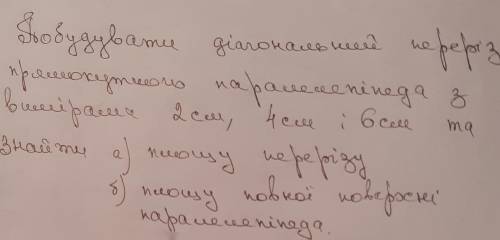 Побудувати діагональний переріз
прямокутного паралелепіпеда з
вимірами 2см, 4см і 6см та
знайти а) площу перерізу
б) площу повної поверхні
паралелепіпеда.